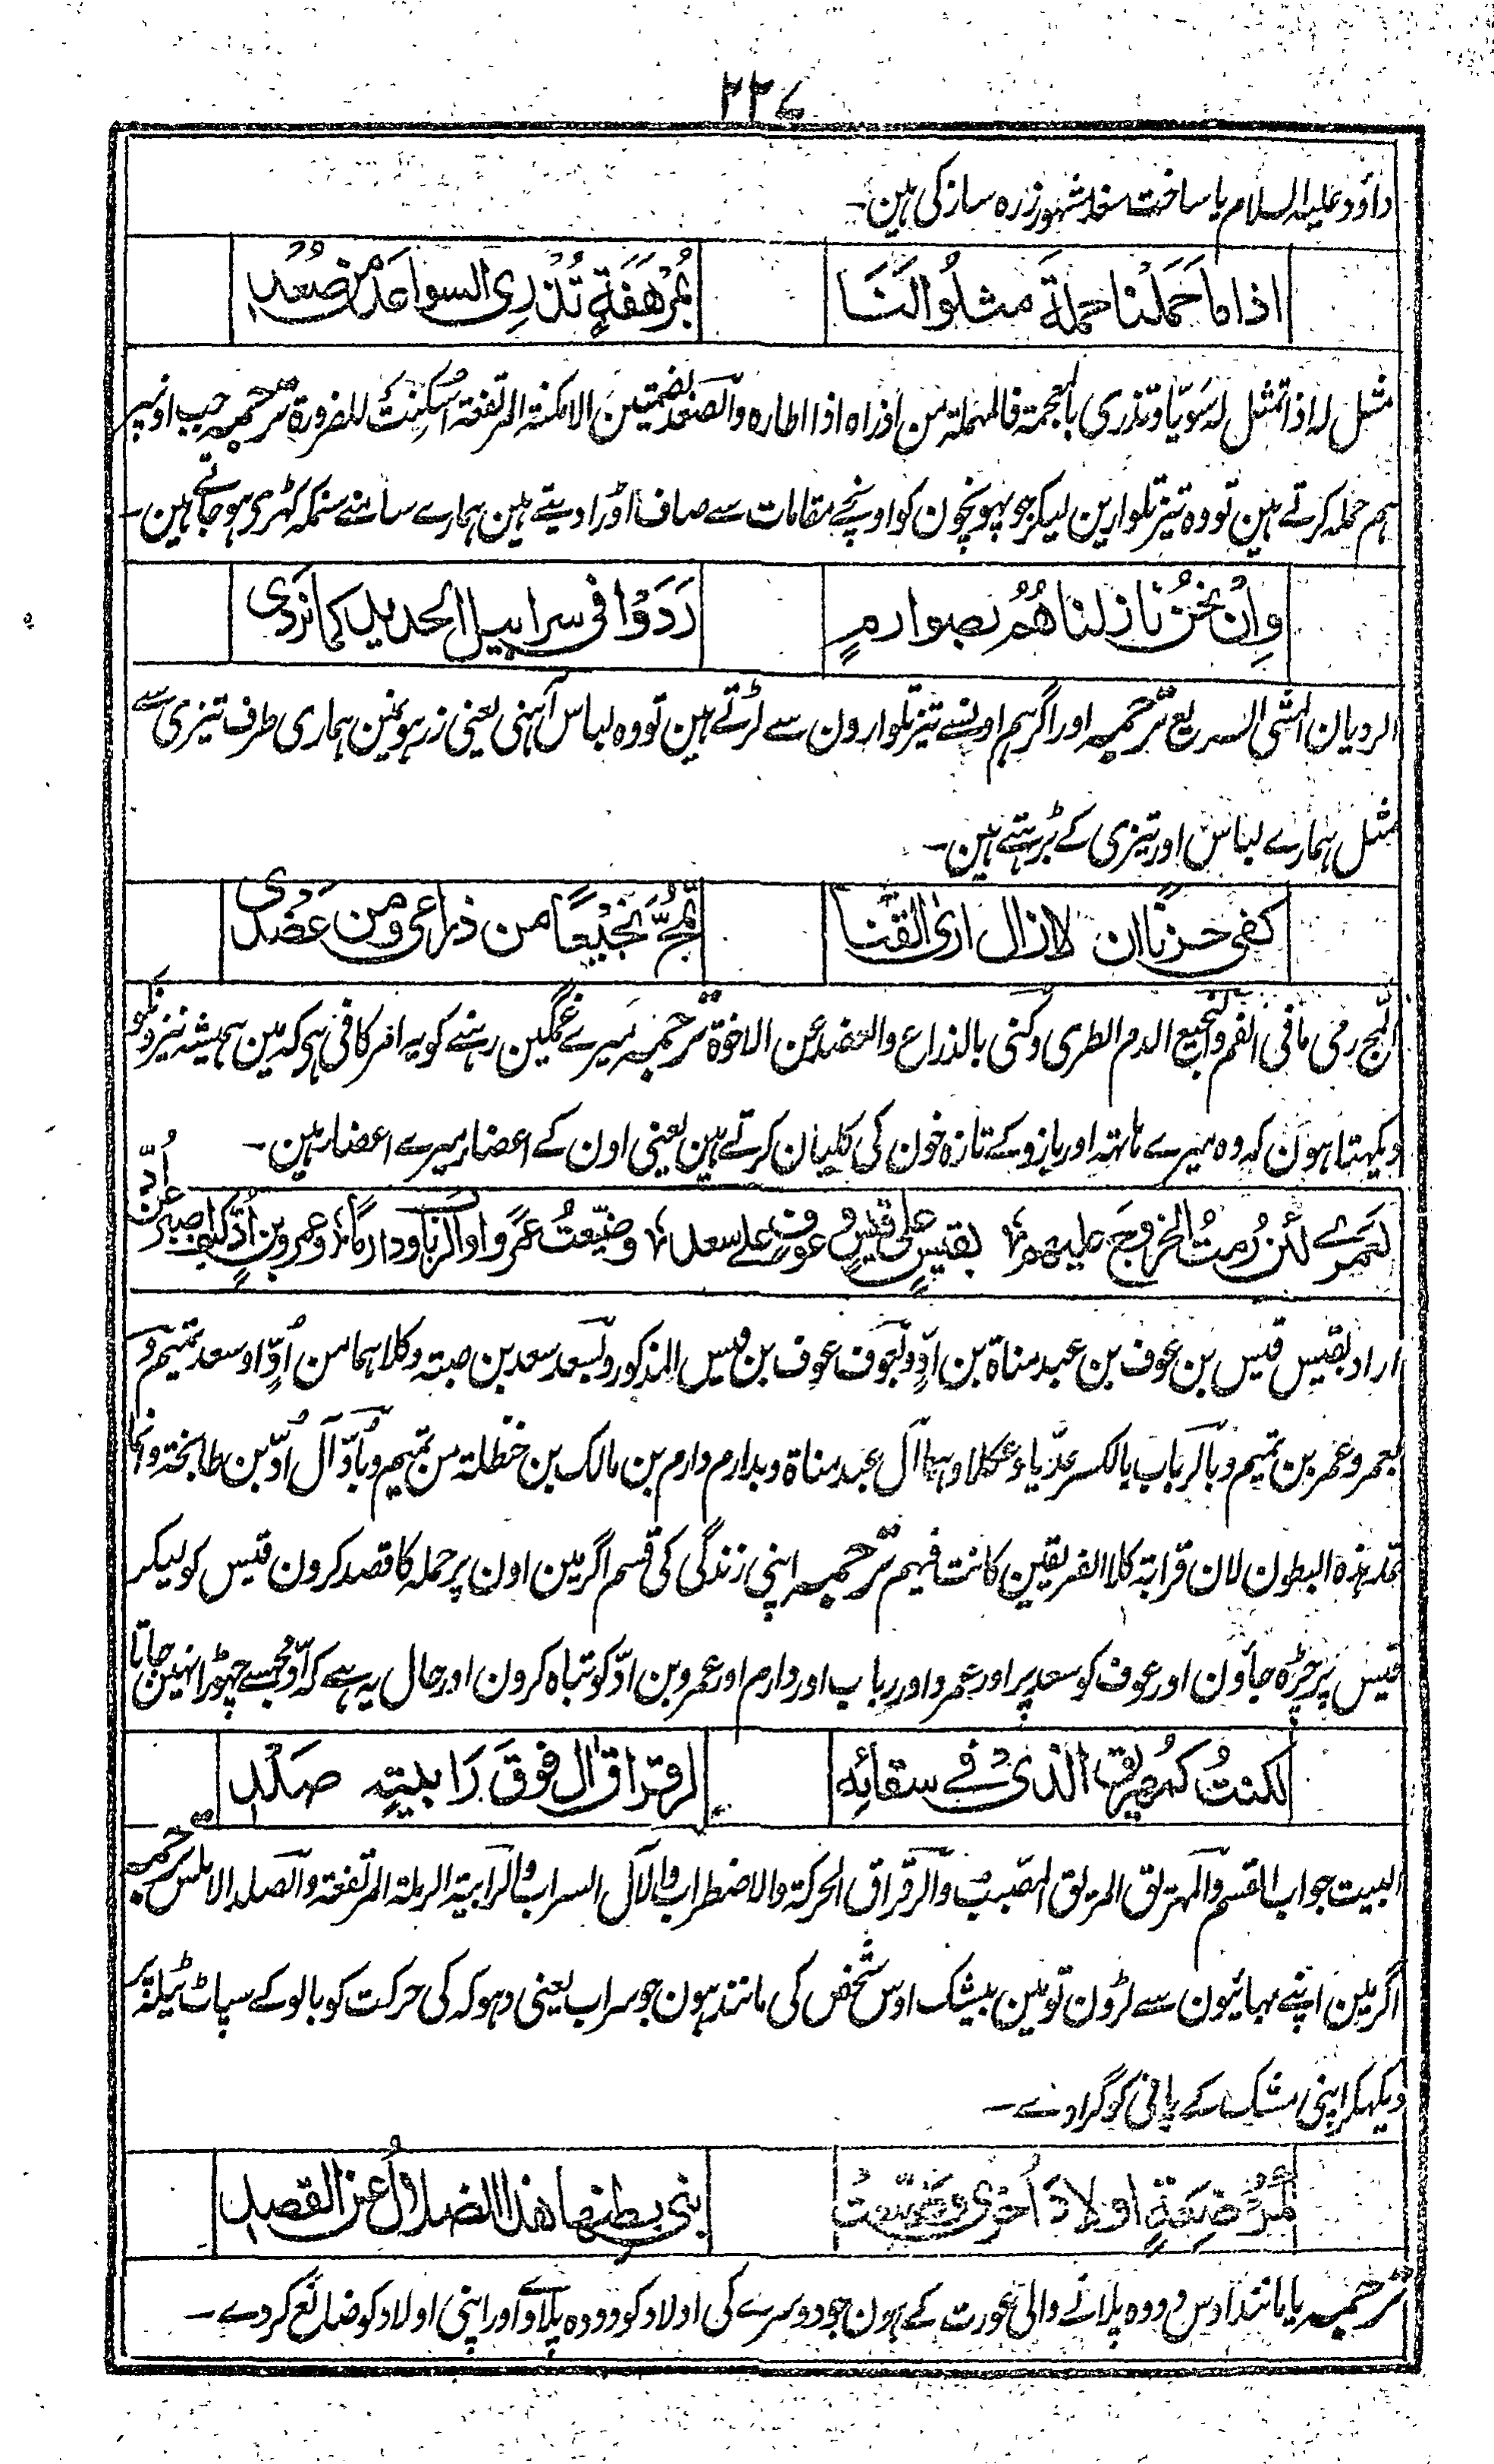 ۲۲۷
داؤد علیہ السلام یا ساخت سغد مشہور زرہ ساز کی ہین۔
اذا ما حَمَلْنا حملةً مثلُوا لَنَا بمُرْهَفَةٍ تُذْرِی السواعدَ من صُعْدِ
مثل لہ اذا تمثل لہ سَوِیّا وتذری بالمعجمۃ فالمہملۃ من اذراہ اذا اطارہ والصعد بضمتین الامکنۃ المرتفعۃ اُسکِنَتْ للضرورۃ ترجمہ جب اونپر
ہم حملہ کرتے ہین تو وہ تیز تلوارین لیکر جو پہونچون کو اونچے مقامات سے صاف اوڑا دیتے ہین ہمارے سامنے سنمکہ کہڑی ہو جاتے ہین۔
وإنْ نحنُ نازلناهُمُ بصوارمٍ رَدَوْا فی سرابیل الحدید کما نردی
الردیان المشی السریع ترجمہ اور اگر ہم اونسے تیز تلوارون سے لڑتے ہین تو وہ لباس آہنی یعنی زرہونمین ہماری طرف تیزی سے
مثل ہمارے لباس اور تیزی کے بڑہتے ہین۔
کفی حزنًا ان لا ازال اری القنا تمُجُّ نجیعًا من ذراعی ومن عَضُدی
المج رمی ما فی الفم والنجیع الدم الطری وکنی بالذراع والعضد عن الاخوۃ ترجمہ میرے غمگین رہنے کو یہ امر کافی ہی کہ مین ہمیشہ نیزونکو
دیکہتا ہون کہ وہ میرے ہاتہہ اور بازو کے تازہ خون کی کلیان کرتے ہین یعنی اون کے اعضا میرے اعضا ہین۔
لعَمری لئن رُمتُ الخروجَ علیهم بقیسٍ علی قیسٍ وعوفٍ علی سعد وضیّعتُ عَمرًا والرباب ودارمًا وعمرو بن اُدٍّ کیف اصبر عن اُدِّ
اراد بقیس قیس بن عوف بن عبد مناۃ بن ادٍّ وبعوف عوف بن قیس المذکور وبسعد سعد بن ضبۃ وکلاہما من اُدٍّ او سعد تمیم و
بعمرو عمرو بن تمیم وبالرباب بالکسر عدّیا وعکلا وہما آل عبد مناۃ وبدارم دارم بن مالک بن حنظلۃ من تمیم وبأدّ آل اُدّ بن طابخۃ وانما
عد ہذہ البطون لان قرابۃ کلا الفریقین کانت فیہم ترجمہ اپنی زندگی کی قسم اگر مین اون پر حملہ کا قصد کرون قیس کو لیکر
قیس پر چڑہ جاؤن اور عوف کو سعد پر اور عمرو اور رباب اور دارم اور عمرو بن ادّ کو تباہ کرون اور حال یہ ہے کہ اُدّ مجھسے چہوڑا نہین جاتا
لکنتُ کمُهریق الذی فی سقائِه لرقراق آل فوقَ رَابیةٍ صَلْدِ
البیت جواب القسم والمہریق المریق المصبب والرقراق الحرکۃ والاضطراب والآل السراب والرابیۃ الرملۃ المرتفعۃ والصلد الاملس ترجمہ
اگر مین اپنے بہائیون سے لڑون تو مین بیشک اوس شخص کی مانند ہون جو سراب یعنی دہوکہ کی حرکت کو بالو کے سپاٹ ٹیلہ پر
دیکہکر اپنی مشک کے پانی کو گرا دے۔
کمُرْضِعَةٍ اولادَ اُخری وضیّعتْ بنی بطنها هذا الضلالُ عن القصدِ
ترجمہ یا مانند اوس دودہ پلانے والی عورت کے ہون جو دوسرے کی اولاد کو دودہ پلاوے اور اپنی اولاد کو ضائع کر دے۔